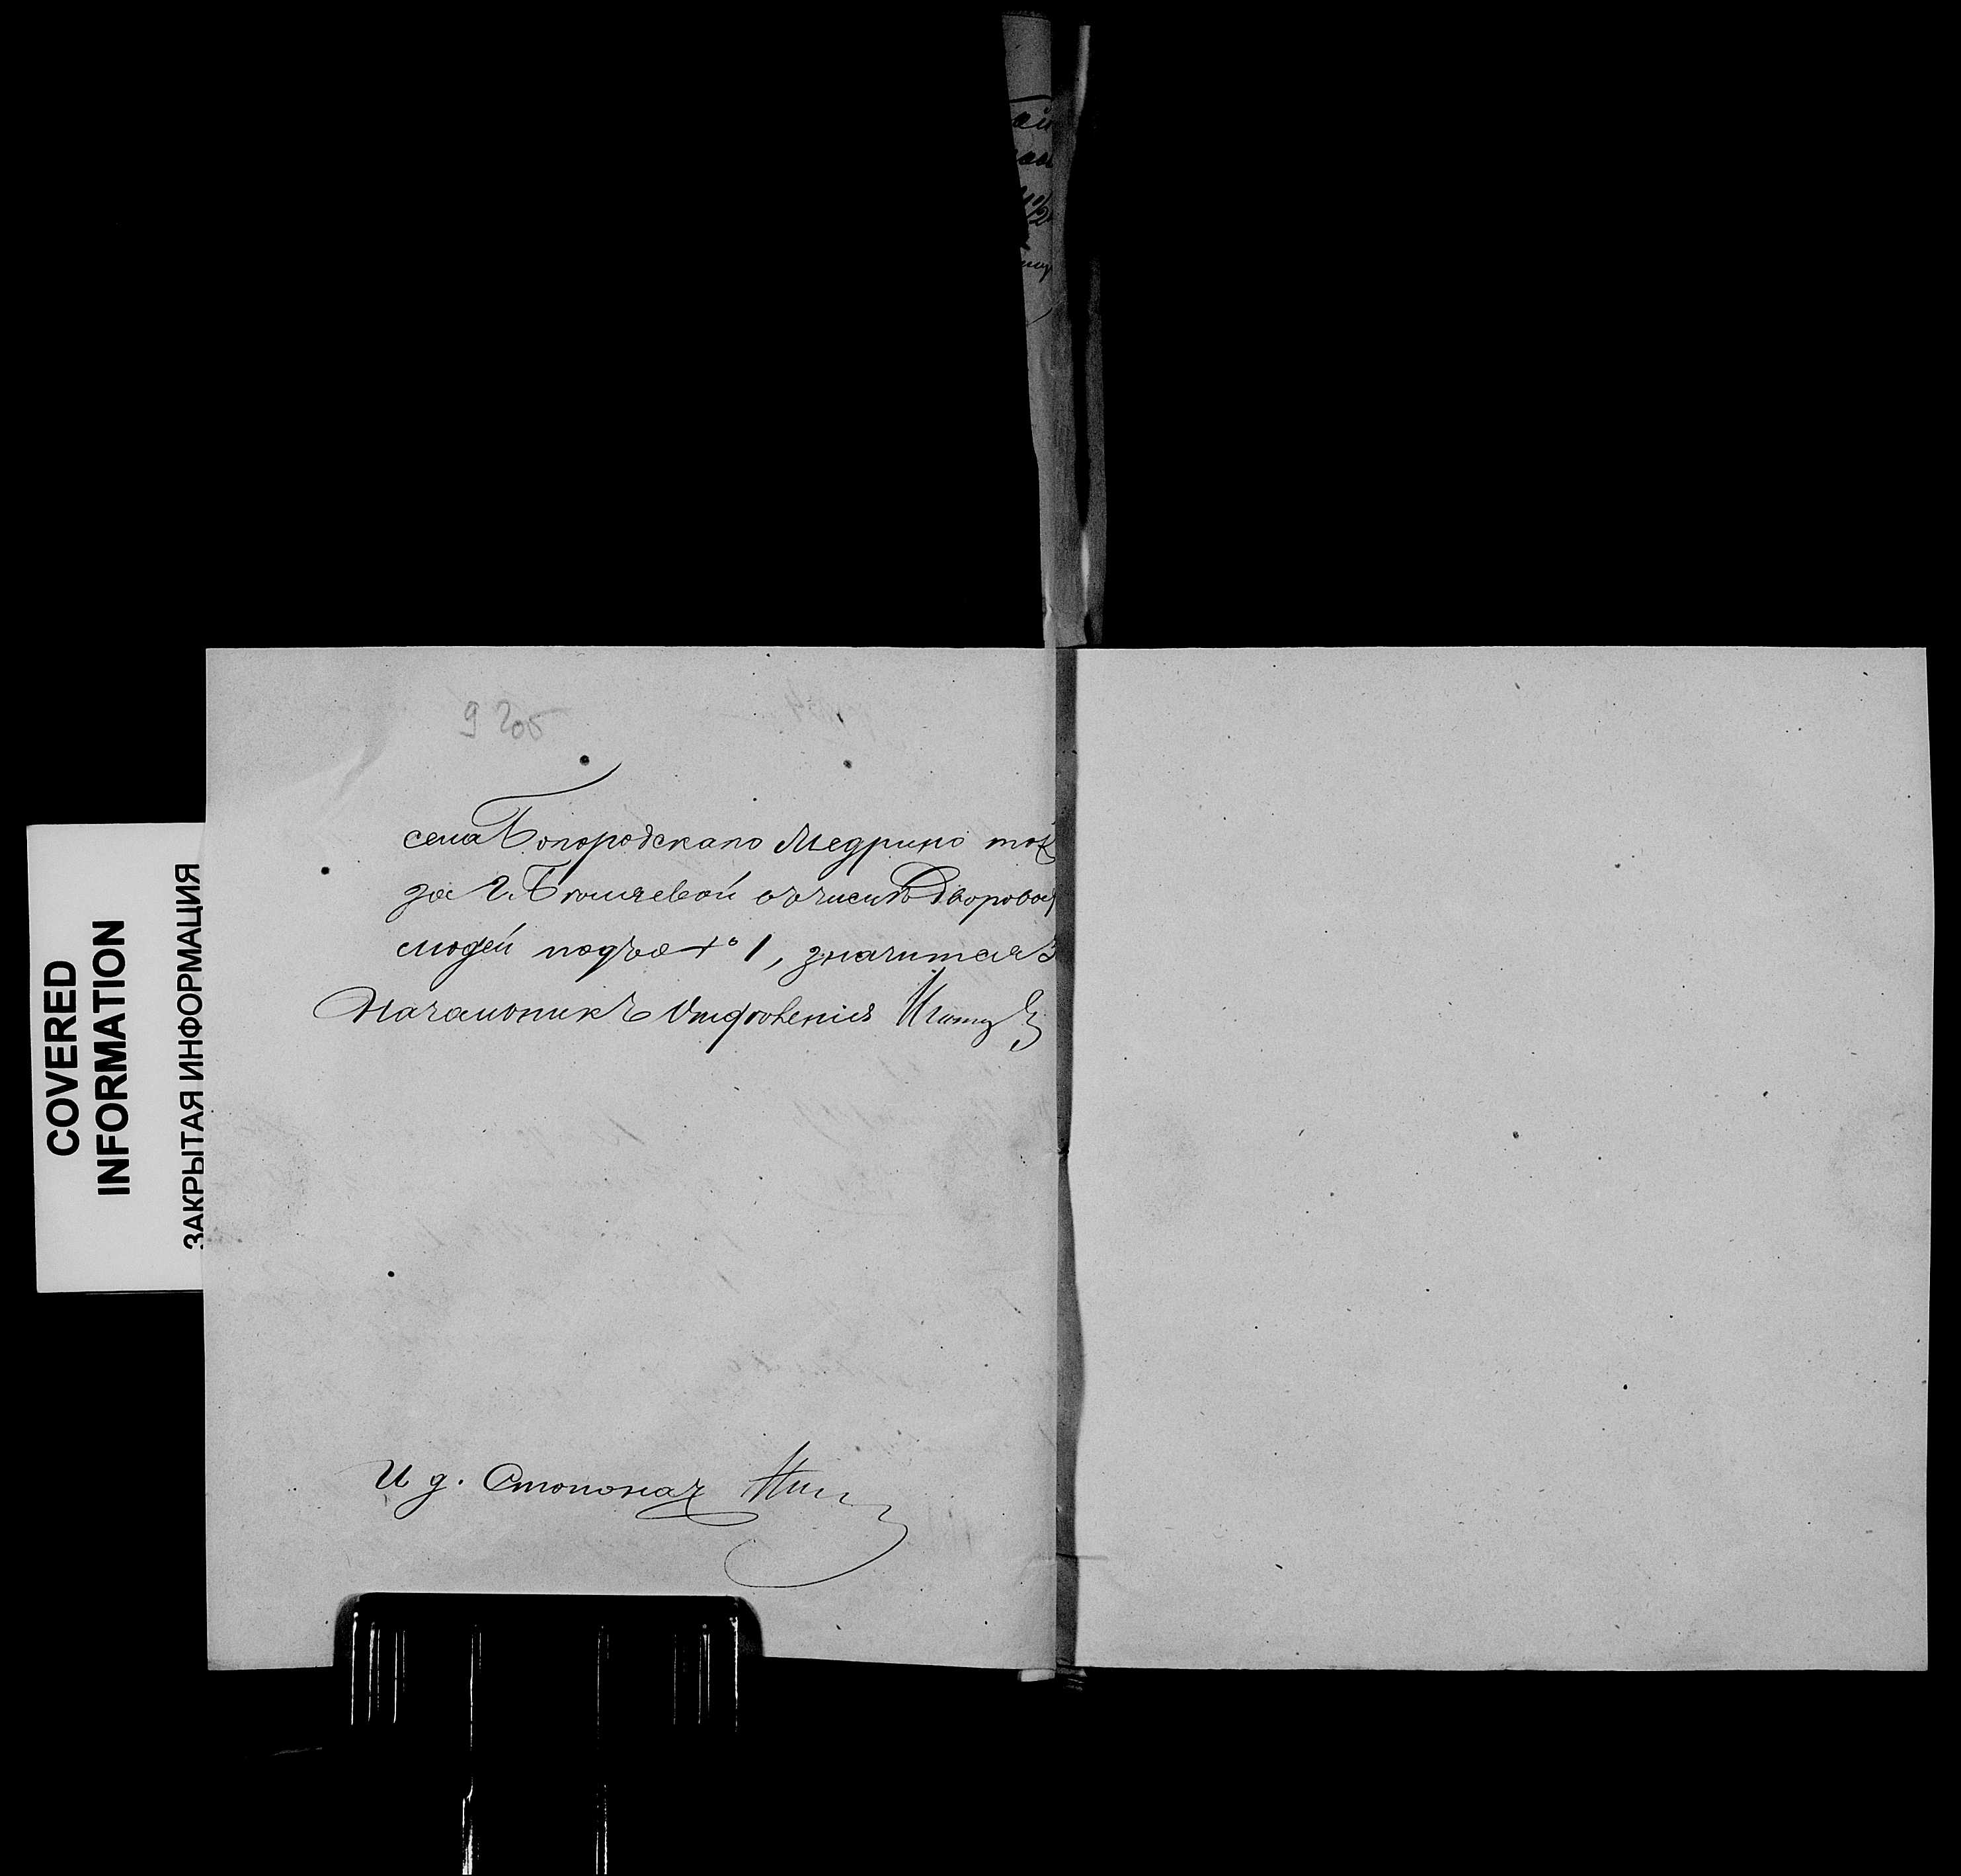 9 об
села Богородскаго Медрино тож
за Г. Бюляевой въ числѣ Дворовых
людей подъ № 1, значится
Начальникъ Отдѣленія
И д. Столонач
COVERED
INFORMATION
ЗАКРЫТАЯ ИНФОРМАЦИЯ